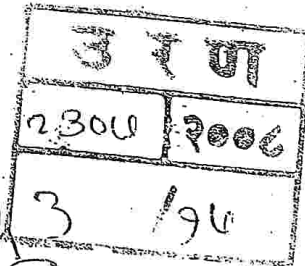 उरण
२३०५ २००८
३ /१५